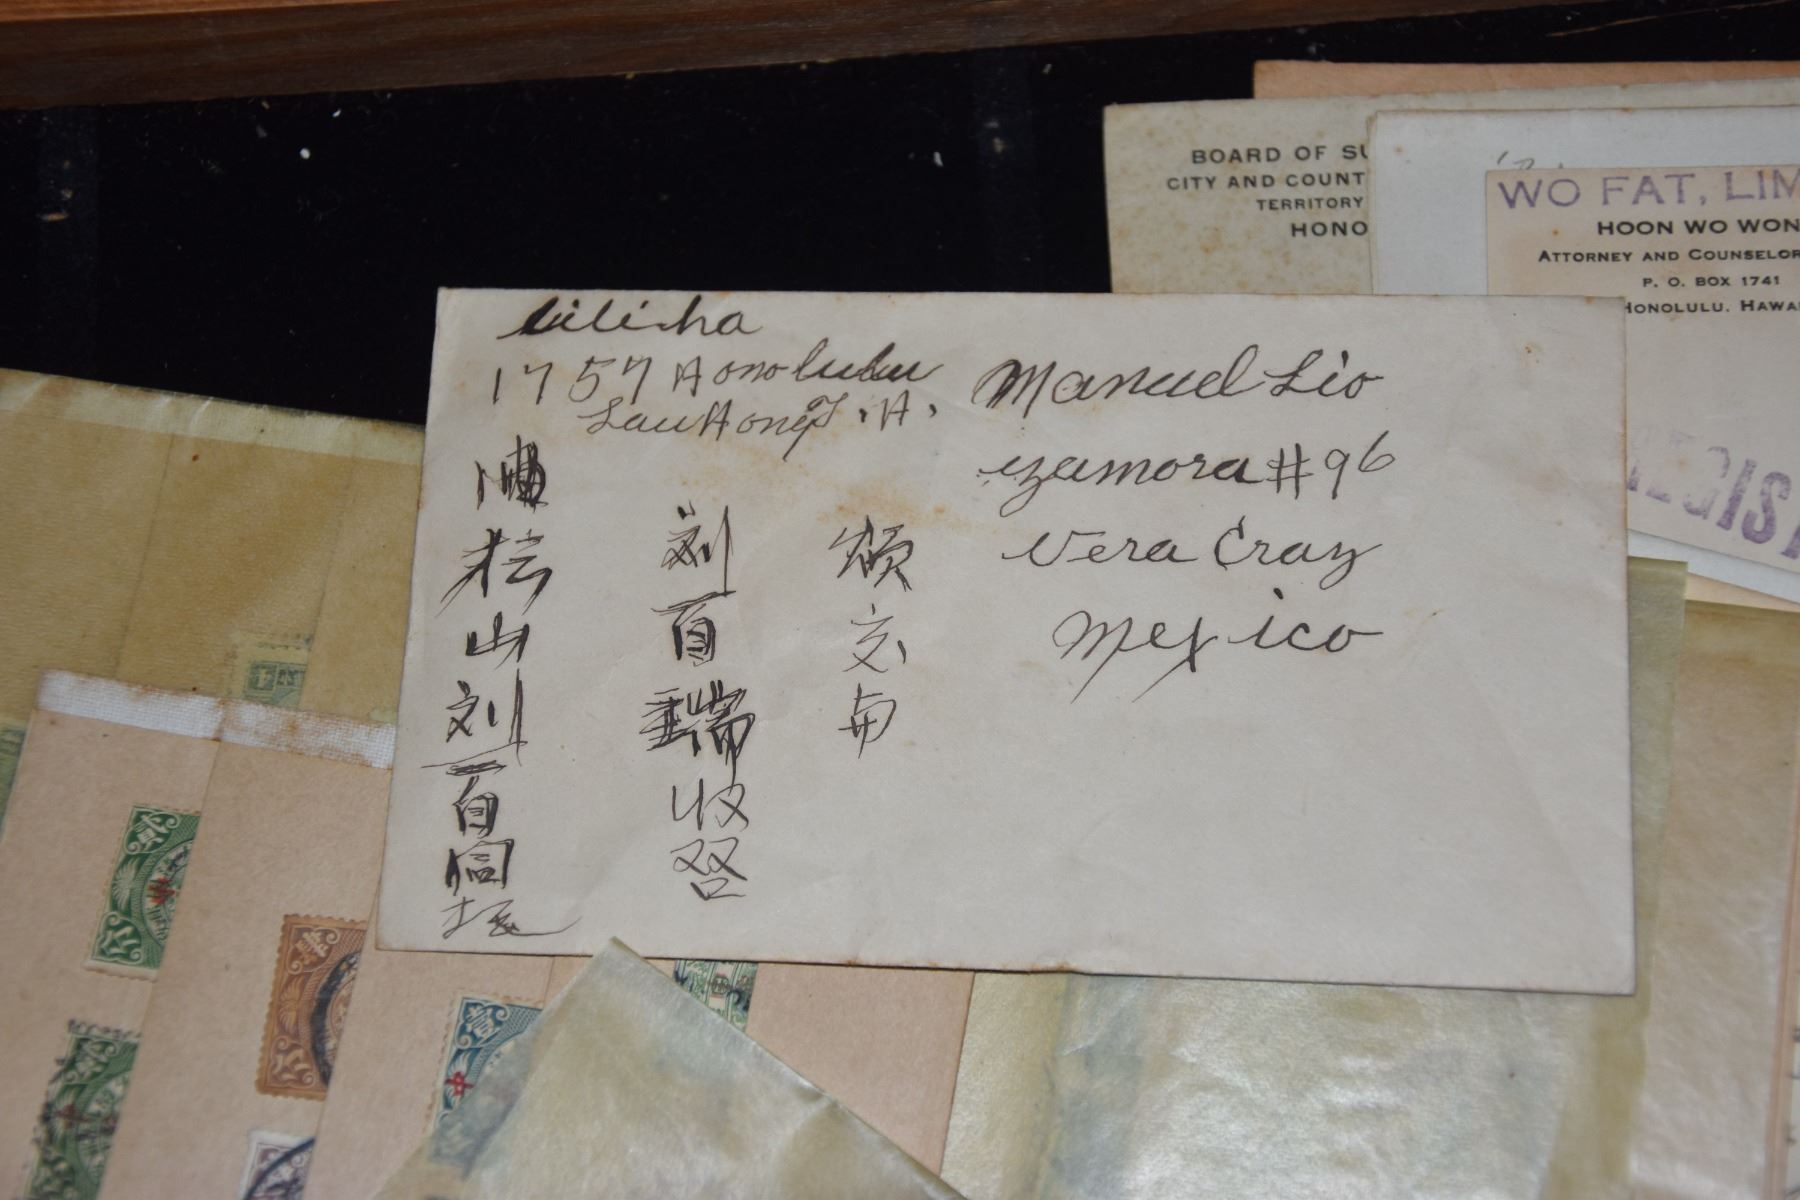 BOARD OF SU
CITY AND COUNT
TERRITORY
HONO
WO FAT, LIM
HOON WO WON
ATTORNEY AND COUNSELOR
P. O. BOX 1741
HONOLULU, HAWA
REGIST
Liliha
1757 Honolulu
Lau Hong T. H.
Manuel Lio
Zamora #96
Vera Cruz
Mexico
煩交與
刘百瑞收啓
檀山刘百